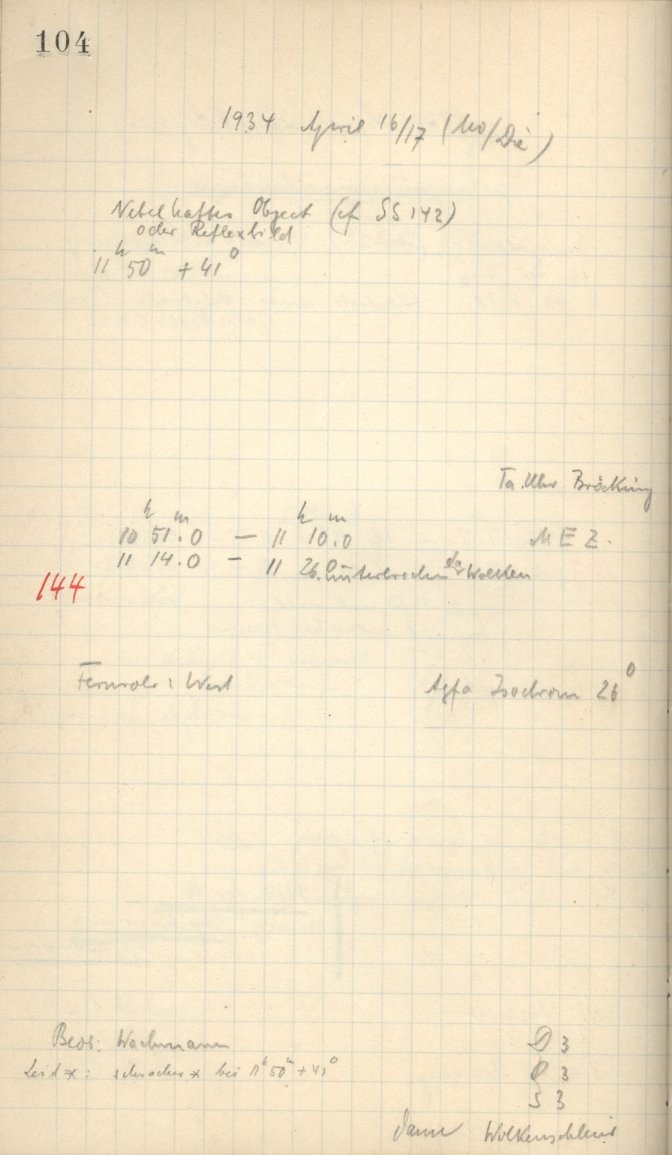 104
1934 April 16/17 (Mo/Die)
Nebelhaftes Object (cf SS 142)
oder Reflexbild
11 h 50 m + 41 0
Ta. Uhr Bröcking
h m h m
10 51.0 — 11 10.0 M E Z.
11 14.0 — 11 26.0 unterbrochen Wolken
144
Fernrohr: West Agfa Isochrom 26 0
Beob: Wachmann D 3
Leit *: schwacher * bei 11 h 50 m + 41 0 3
S 3
Dann Wolkenschleier